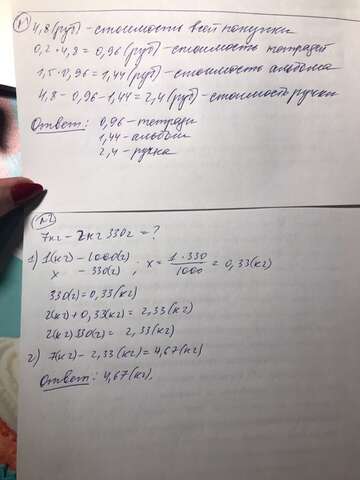 №1
4,8 (руб) - стоимость всей покупки
0,2 · 4,8 = 0,96 (руб) - стоимость тетрадей
1,5 · 0,96 = 1,44 (руб) - стоимость альбома
4,8 - 0,96 - 1,44 = 2,4 (руб) - стоимост ручки
Ответ: 0,96 - тетради
1,44 - альбом
2,4 - ручка
№2
7кг - 2кг 330г = ?
1) 1(кг) - 1000(г)
x - 330(г) , x = 1 · 330 / 1000 = 0,33(кг)
330(г) = 0,33(кг)
2(кг) + 0,33(кг) = 2,33(кг)
2(кг) 330(г) = 2,33(кг)
2) 7(кг) - 2,33(кг) = 4,67(кг)
Ответ: 4,67(кг).